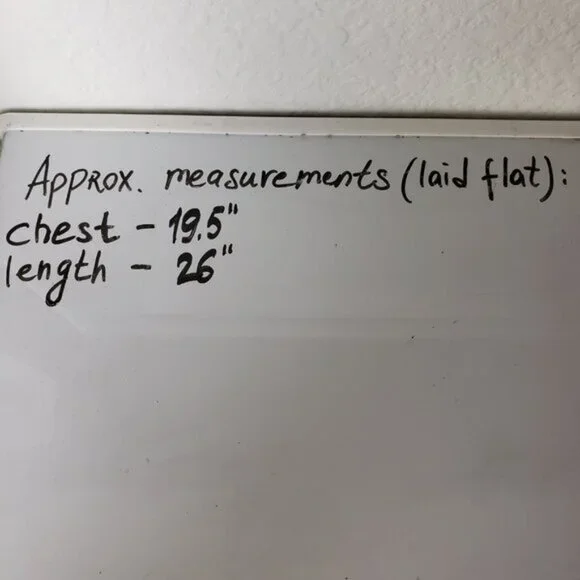 Approx. measurements (laid flat):
chest - 19.5"
length - 26"